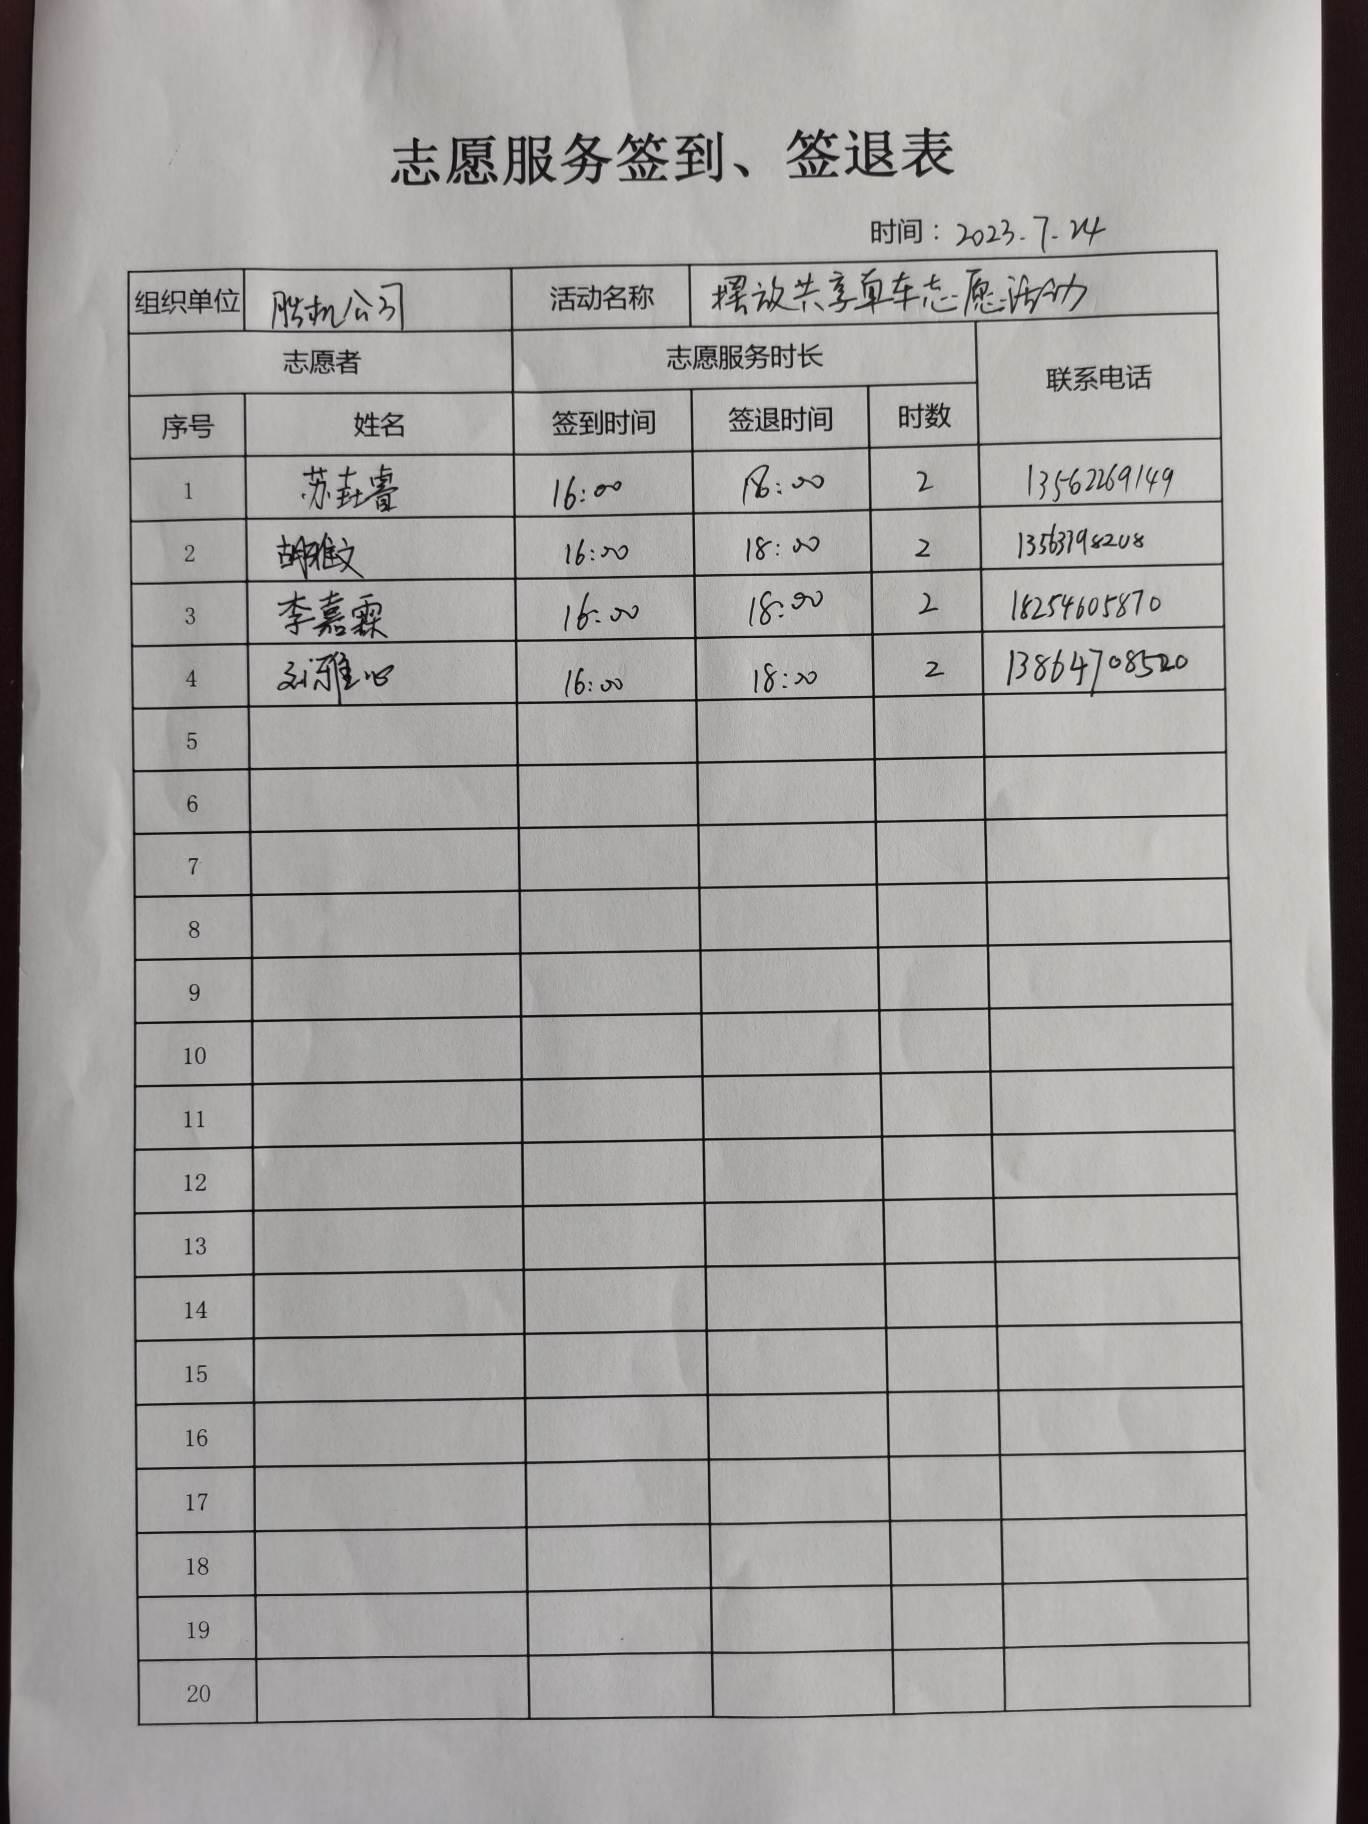 志愿服务签到、签退表
时间：2023.7.24
组织单位 胜机公司 活动名称 摆放共享单车志愿活动
志愿者 志愿服务时长 联系电话
序号 姓名 签到时间 签退时间 时数
1 苏垚睿 16:00 18:00 2 13562269149
2 胡雅文 16:00 18:00 2 13563198208
3 李嘉霖 16:00 18:00 2 18254605870
4 刘雅心 16:00 18:00 2 13864708520
5
6
7
8
9
10
11
12
13
14
15
16
17
18
19
20